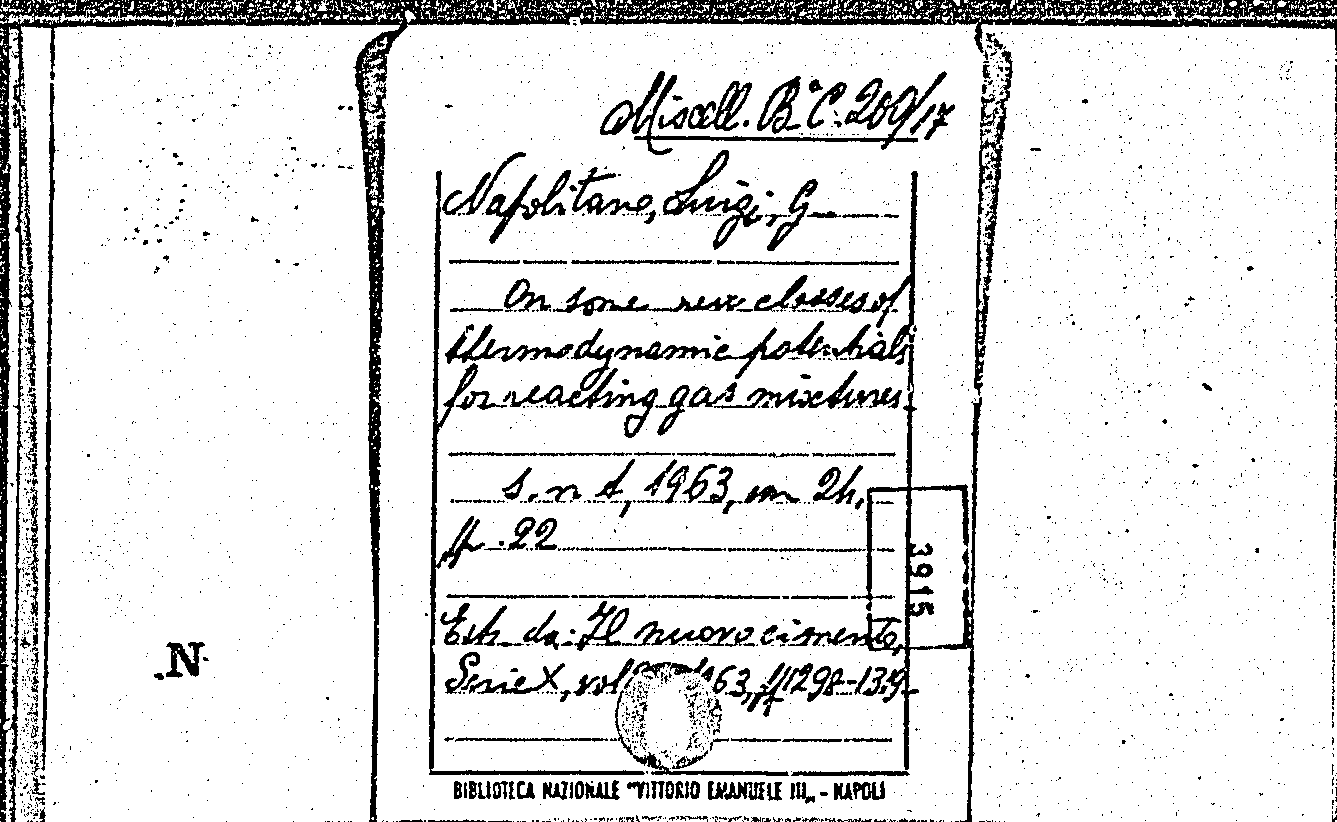 Miscell. B.ª C. 209/17
Napolitano, Luigi, G.
On some new classes of
thermodynamic potentials
for reacting gas mixtures.
s. n. t., 1963, in 24,
pp. 22
3915
Estr. da: Il nuovo cimento,
.N
Serie X, vol 963, pp 1298-1319.
BIBLIOTECA NAZIONALE "VITTORIO EMANUELE III„ - NAPOLI